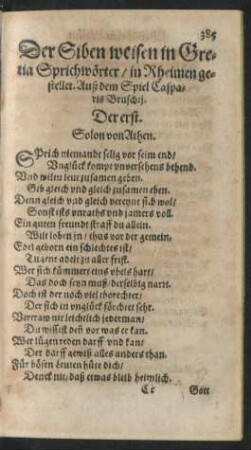 385
Der Siben weisen in Gre-
tia Sprichwörter / in Rheimen ge-
stellet. Auß dem Spiel Caspa-
ris Bruschij.
Der erst.
Solon von Athen.
SPrich niemandt selig vor seim end /
Vnglück kompt vnversehens behend.
Vnd wilen leut zusamen geben.
Gib gleich vnd gleich zusamen eben.
Denn gleich vnd gleich vereynt sich wol /
Sonst ists vnraths vnd jamers voll.
Ein guten freundt straff du allein.
Wilt loben jn / thus vor der gemein.
Edel geborn ein schlechtes ist /
Tugent adelt zu aller frist.
Wer sich kümmert eins vbels hart /
Das doch seyn muß / derselbig narrt.
Doch ist der noch viel thorechter /
Der sich in vnglück förchtet sehr.
Vertraw nit leichtlich jederman /
Du wissest deñ vor was er kan.
Wer lügen reden darff vnd kan /
Der darff gewiß alles anders than.
Für bösen leuten hüte dich /
Denck nit, daß etwas bleib heimlich.
Cc
Gott